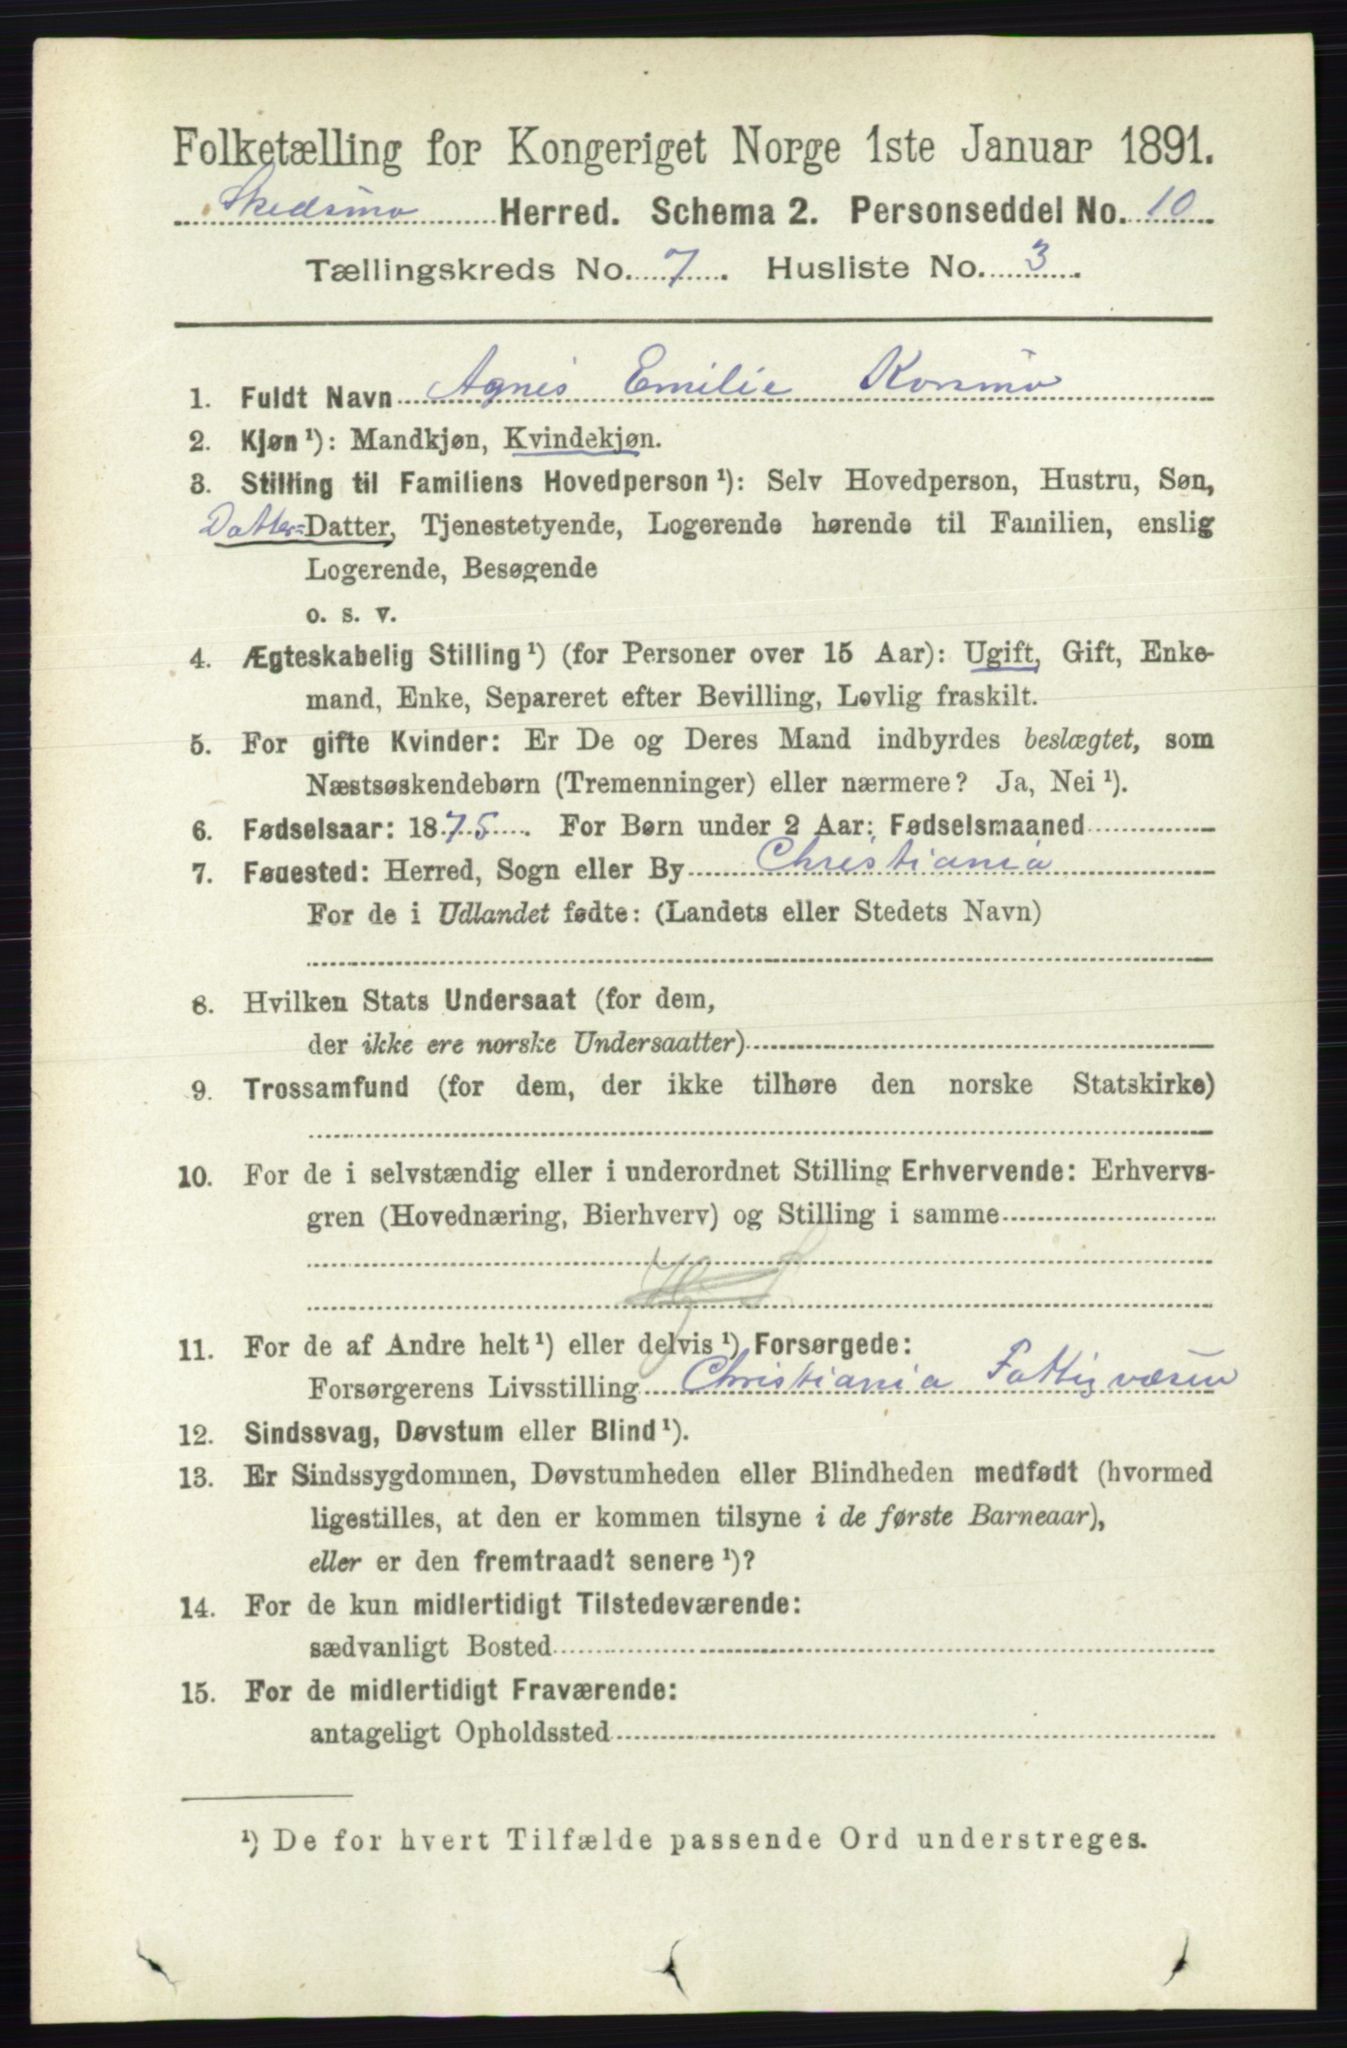 Folketælling for Kongeriget Norge 1ste Januar 1891.
Skedsmo Herred. Schema 2. Personseddel No. 10
Tællingskreds No. 7. Husliste No. 3.
1. Fuldt Navn Agnes Emilie Korsmo
2. Kjøn¹): Mandkjøn, Kvindekjøn.
3. Stilling til Familiens Hovedperson¹): Selv Hovedperson, Hustru, Søn,
Datter= Datter, Tjenestetyende, Logerende hørende til Familien, enslig
Logerende, Besøgende
o. s. v.
4. Ægteskabelig Stilling¹) (for Personer over 15 Aar): Ugift, Gift, Enke-
mand, Enke, Separeret efter Bevilling, Lovlig fraskilt.
5. For gifte Kvinder: Er De og Deres Mand indbyrdes beslægtet, som
Næstsøskendebørn (Tremenninger) eller nærmere? Ja, Nei¹).
6. Fødselsaar: 1875. For Børn under 2 Aar: Fødselsmaaned
7. Fødested: Herred, Sogn eller By Christiania
For de i Udlandet fødte: (Landets eller Stedets Navn)
8. Hvilken Stats Undersaat (for dem,
der ikke ere norske Undersaatter)
9. Trossamfund (for dem, der ikke tilhøre den norske Statskirke)
10. For de i selvstændig eller i underordnet Stilling Erhvervende: Erhvervs-
gren (Hovednæring, Bierhverv) og Stilling i samme
11. For de af Andre helt¹) eller delvis¹) Forsørgede:
Forsørgerens Livsstilling Christiania Fattigvæsen
12. Sindssvag, Døvstum eller Blind¹).
13. Er Sindssygdommen, Døvstumheden eller Blindheden medfødt (hvormed
ligestilles, at den er kommen tilsyne i de første Barneaar),
eller er den fremtraadt senere¹)?
14. For de kun midlertidigt Tilstedeværende:
sædvanligt Bosted
15. For de midlertidigt Fraværende:
antageligt Opholdssted
¹) De for hvert Tilfælde passende Ord understreges.